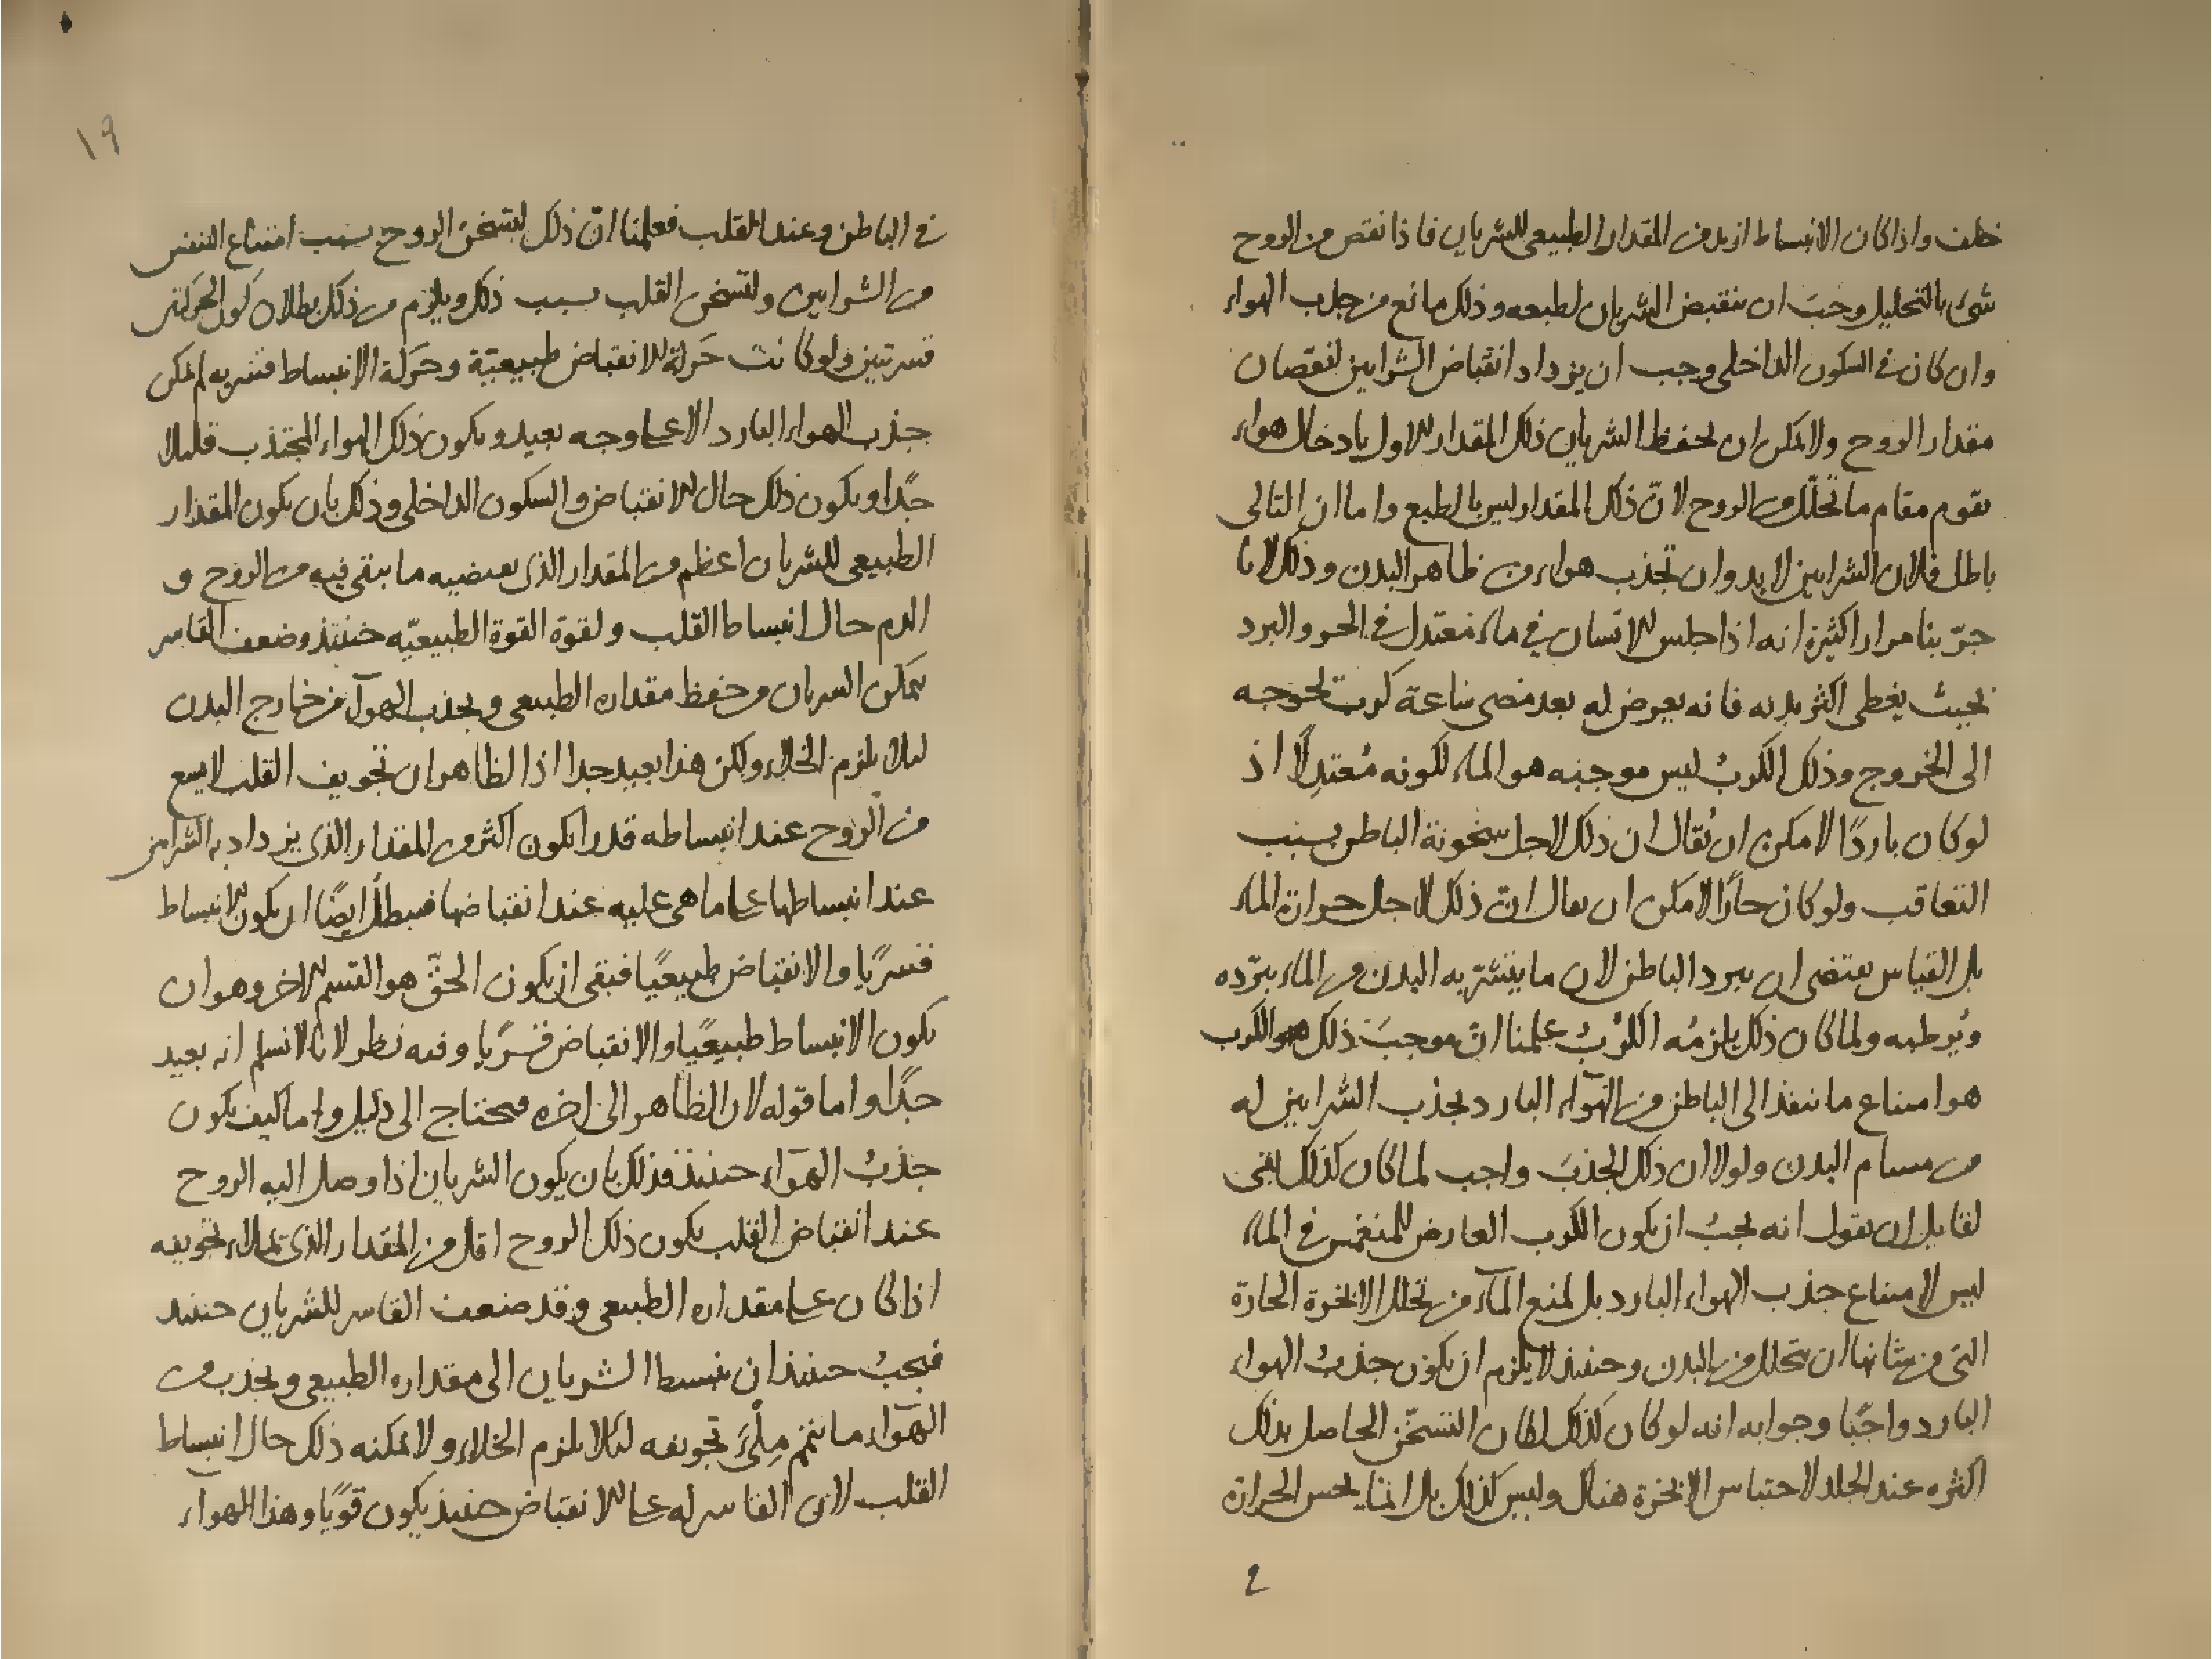 خلف واذا كان الانبساط ازيد من المقدار الطبيعى للشريان فاذا نقص من الروح
شئ بالتحليل وجبَ ان ينقبض الشريان لطبعه وذلك مانع من جذب الهواء
وان كان فى السكون الداخلى وجب ان يزداد انقباض الشرايين لنقصان
مقدار الروح ولا يمكن ان يحفظ الشريان ذلك المقدار الاول بادخال هواء
يقوم مقام ما تحلّل من الروح لانّ ذلك المقدار ليس بالطبع واما ان التالى
باطل فلان الشرايين لا بد وان تجذب هواء من ظاهر البدن وذلك لانا
جرّبنا مرارا كثيرة انه اذا جلس الانسان في ماء معتدل فى الحر والبرد
بحيث يغطى اكثر بدنه فانه يعرض له بعد مضى ساعة كرب تحوجه
الى الخروج وذلك الكربُ ليس موجبه هو الماء لكونه مُعتدِلًا اذ
لو كان باردًا لامكن ان يُقال ان ذلك لاجل سخونة الباطن بسبب
التعاقب ولو كان حارًا لامكن ان يقال انّ ذلك لاجل حرارة الماء
بل القياس يقتضى ان يبرد الباطن لان ما يتشرّبه البدن من الماء يبرّده
ويُرطبه ولما كان ذلك يلزمُه الكرْبُ علمنا انّ موجبَ ذلك هو الكرب
هو امتناع ما ينفذ الى الباطن من الهَوآء البارد بجذب الشرايين له
من مسام البدن ولولا ان ذلك الجذبَ واجب لما كان كذلك بقى
لقايل ان يقول انه يجبُ ان يكون الكرب العارض للمنغمس فى الماء
ليس لامتناع جذب الهواء البارد بل لمنع المآء من تحلل الابخرة الحارة
التى من شانها ان تتحلل من البدن وحينئذ لا يلزم ان يكون جذبُ الهواء
البارد واجبًا وجوابه انه لو كان كذلك لكان التسخّن الحاصل بذلك
اكثره عند الجلد لاحتباس الابخرة هناك وليس كذلك بل انما يحس الحرارة
٤
١٩
فى الباطن وعند القلب فعلمنا انّ ذلك لتسخن الروح بسبب امتناع التنفس
من الشرايين ولتسخن القلب بسبب ذلك ويلزم من ذلك بطلان كون الحركتين
قسريتين ولو كانت حَركة الانقباض طبيعيّة وحَركة الانبساط قسريه لم يمكن
جذب الهواء البارد الا على وجه بعيد ويكون ذلك الهواء المجتذب قليلا
جدًا ويكون ذلك حال الانقباض والسكون الداخلى وذلك بان يكون المقدار
الطبيعى للشريان اعظم من المقدار الذى يقتضيه ما يبقى فيه من الروح و
الدم حال انبساط القلب ولقوة القوة الطبيعيّه حينئذ وضعف القاسر
يتمكن الشريان من حفظ مقداره الطبيعى ويجذب الهوآء من خارج البدن
ليلا يلزم الخلاء ولكن هذا بعيد جدا اذ الظاهر ان تجويف القلب لا يسع
من الرّوح عند انبساطه قدرا يكون اكثر من المقدار الذى يزداد به الشرايين
عند انبساطها على ما هى عليه عند انقباضها فيبطل ايضًا ان يكون الانبساط
قسرًيا والانقباض طبيعيًا فبقى ان يكون الحقّ هو القسم الاخر وهو ان
يكون الانبساط طبيعيًا والانقباض قسرًيا وفيه نظر لانا لا نسلم انه بعيد
جدًا واما قوله لان الظاهر الى اخره فيحتاج الى دليل واما كيف يكون
جذبُ الهوَاء حينئذ فذلك بان يكون الشريان اذا وصل اليه الروح
عند انقباض القلب يكون ذلك الروح اقل من المقدار الذى يملاء تجويفه
اذا كان على مقداره الطبيعى وقد ضعف القاسر للشريان حينئذ
فيجبُ حينئذ ان ينبسط الشريان الى مقداره الطبيعى ويجذب من
الهَواء ما يتمم مِلْئَ تجويفه ليلا يلزم الخلاء ولا يمكنه ذلك حال انبساط
القلب لان القاسر له على الانقباض حينئذ يكون قوًيا وهذا الهوآء